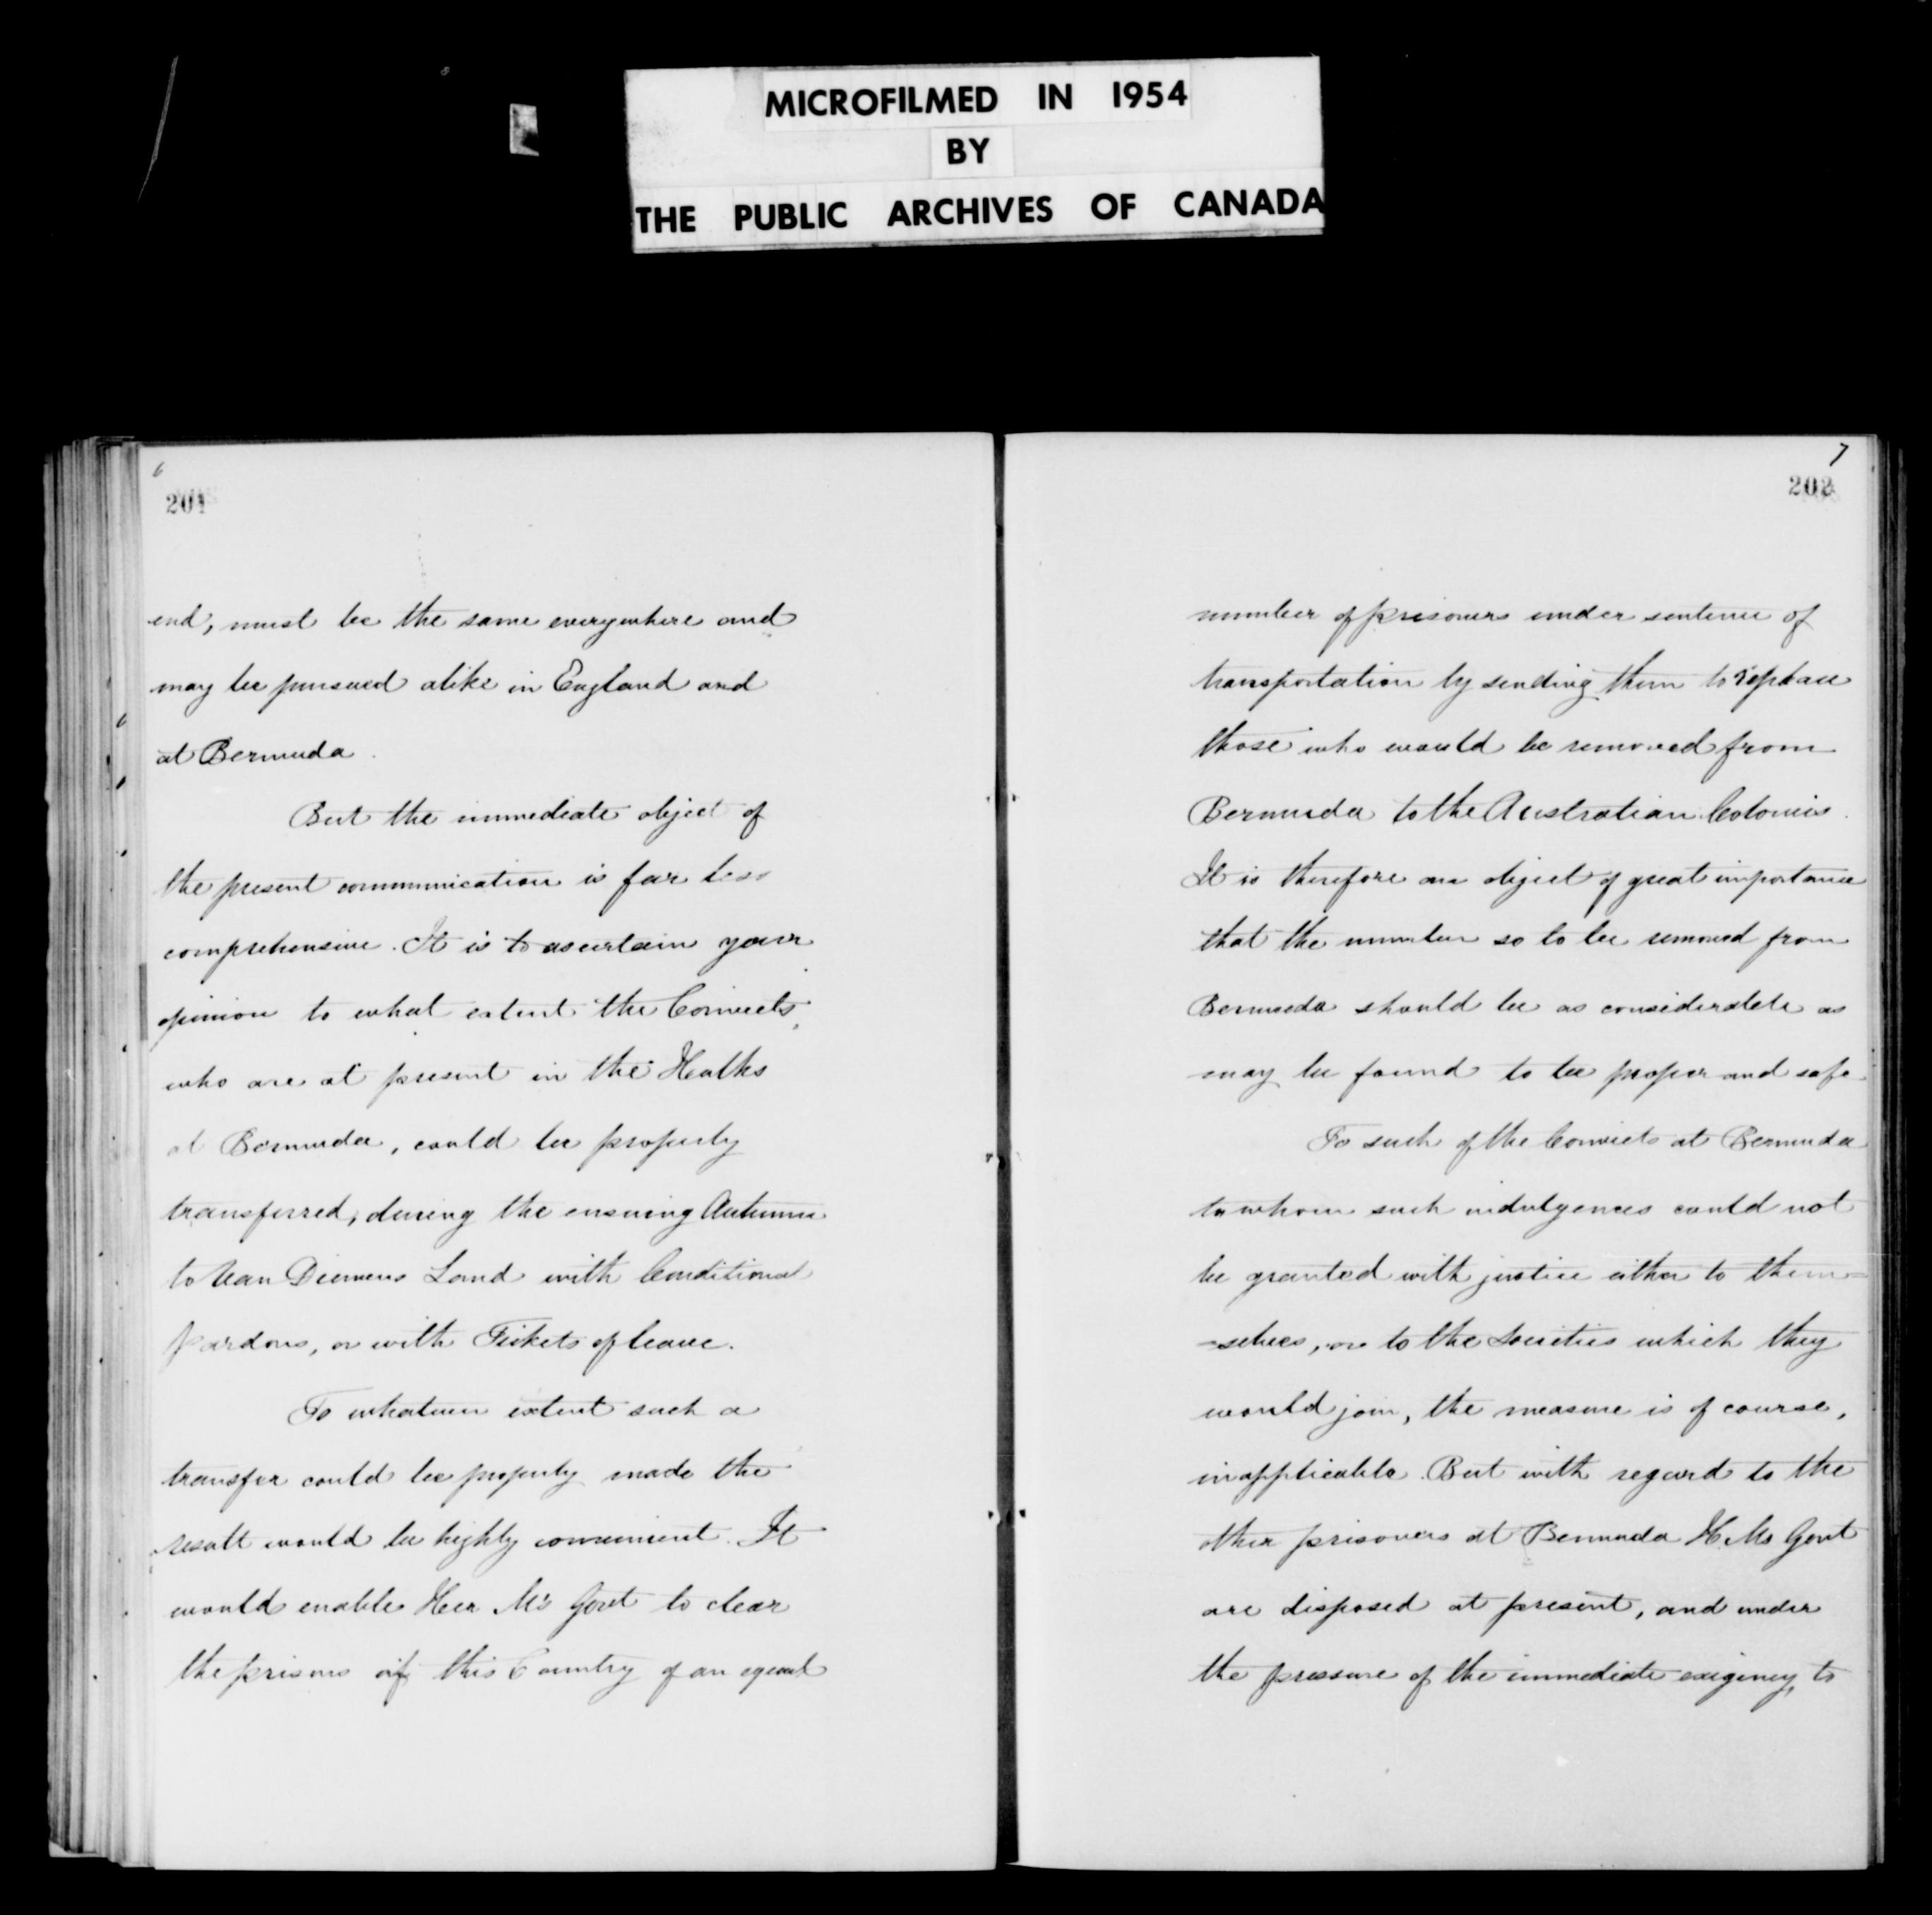 MICROFILMED IN 1954
BY
THE PUBLIC ARCHIVES OF CANADA
6
201
end, must be the same everywhere and
may be pursued alike in England and
at Bermuda.
But the immediate object of
the present communication is far less
comprehensive. It is to ascertain your
opinion to what extent the Convicts,
who are at present in the Hulks
at Bermuda, could be properly
transferred, during the ensuing Autumn
to Van Diemens Land with Conditional
pardons, or with Tickets of leave.
To whatever extent such a
transfer could be properly made the
result would be highly convenient. It
would enable Her M's Govt to clear
the prisons of this Country of an equal
7
202
number of prisoners under sentence of
transportation by sending them to replace
those who would be removed from
Bermuda to the Australian Colonies.
It is therefore an object of great importance
that the number so to be removed from
Bermuda should be as considerable as
may be found to be proper and safe.
To such of the Convicts at Bermuda
to whom such indulgences could not
be granted with justice either to them=
=selves, or to the Societies which they
would join, the measure is of course,
inapplicable. But with regard to the
other prisoners at Bermuda H. Ms Govt
are disposed at present, and under
the pressure of the immediate exigency, to